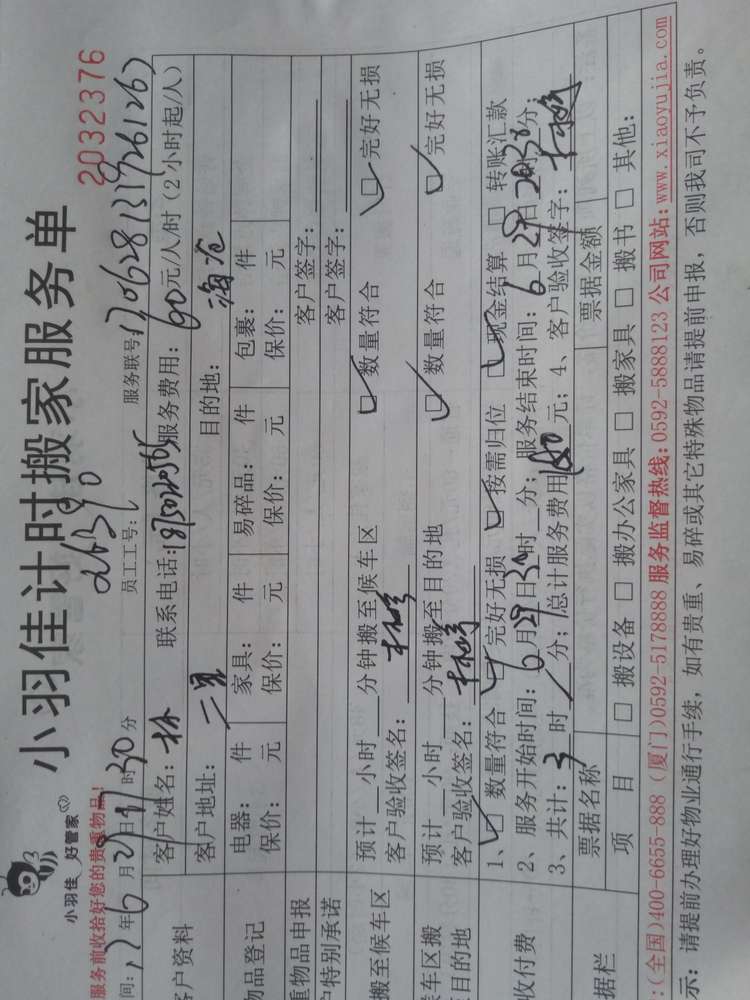 小羽佳计时搬家服务单
2032376
小羽佳 好管家
服务前收拾好您的贵重物品!
间: 17年6月29日 时30分 员工工号: 服务联号: 170628131926126
户资料 客户姓名: 林 联系电话: 服务费用: 60元/人/时(2小时起/人)
客户地址: 目的地: 海沧
物品登记 电器: 件 家具: 件 易碎品: 件 包裹: 件
保价: 元 保价: 元 保价: 元 保价: 元
重物品申报 客户签字:
户特别承诺 客户签字:
搬至候车区 预计__小时__分钟搬至候车区 ☑数量符合 ☑完好无损
客户验收签名:
候车区搬 预计__小时__分钟搬至目的地 ☑数量符合 ☑完好无损
目的地 客户验收签名:
收付费 1、☑数量符合 ☑完好无损 ☑按需归位 ☑现金结算 □转账汇款
2、服务开始时间: 6月29日 时__分; 服务结束时间: 6月29日 时 分;
3、共计: 3时 分; 总计服务费用 元; 4、客户验收签字:
据栏 票据名称 票据金额
项 目 □搬设备 □搬办公家具 □搬家具 □搬书 □其他:
:(全国)400-6655-888 (厦门)0592-5178888 服务监督热线:0592-5888123 公司网站:www.xiaoyujia.com
示: 请提前办理好物业通行手续, 如有贵重、易碎或其它特殊物品请提前申报, 否则我司不予负责。